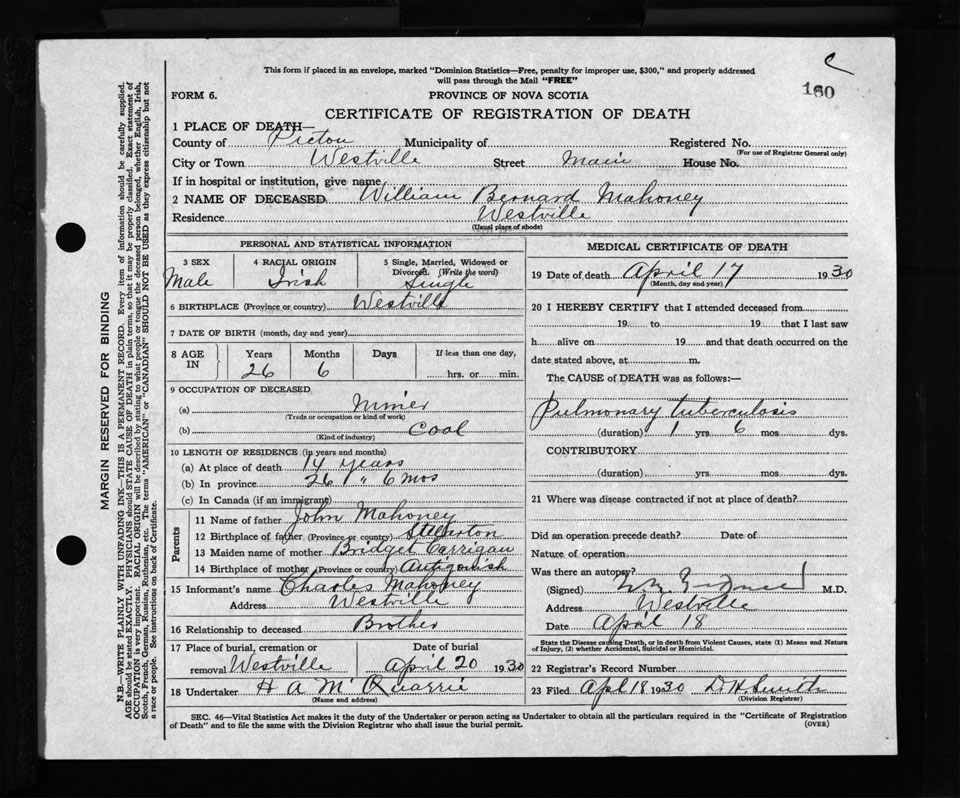 This form if placed in an envelope, marked "Dominion Statistics—Free, penalty for improper use, $300," and properly addressed
will pass through the Mail "FREE"
160
FORM 6. PROVINCE OF NOVA SCOTIA
CERTIFICATE OF REGISTRATION OF DEATH
1 PLACE OF DEATH—
County of Pictou Municipality of Registered No.
(For use of Registrar General only)
City or Town Westville Street Main House No.
If in hospital or institution, give name
2 NAME OF DECEASED William Bernard Mahoney
Residence Westville
(Usual place of abode)
PERSONAL AND STATISTICAL INFORMATION
3 SEX 4 RACIAL ORIGIN 5 Single, Married, Widowed or
Divorced. (Write the word)
Male Irish Single
6 BIRTHPLACE (Province or country) Westville
7 DATE OF BIRTH (month, day and year)
8 AGE IN Years Months Days If less than one day,
26 6 hrs. or min.
9 OCCUPATION OF DECEASED
(a) Miner
(Trade or occupation or kind of work)
(b) Coal
(Kind of industry)
10 LENGTH OF RESIDENCE (in years and months)
(a) At place of death 14 years
(b) In province 26 " 6 mos
(c) In Canada (if an immigrant)
Parents
11 Name of father John Mahoney
12 Birthplace of father (Province or country) Stellarton
13 Maiden name of mother Bridget Carrigan
14 Birthplace of mother (Province or country) Antigonish
15 Informant's name Charles Mahoney
Address Westville
16 Relationship to deceased Brother
17 Place of burial, cremation or Date of burial
removal Westville April 20 1930
18 Undertaker H A McQuarrie
(Name and address)
MEDICAL CERTIFICATE OF DEATH
19 Date of death April 17 1930
(Month, day and year)
20 I HEREBY CERTIFY that I attended deceased from
19 to 19 that I last saw
h alive on 19 and that death occurred on the
date stated above, at m.
The CAUSE of DEATH was as follows:—
Pulmonary tuberculosis
(duration) 1 yrs 6 mos dys.
CONTRIBUTORY
(duration) yrs. mos. dys.
21 Where was disease contracted if not at place of death?
Did an operation precede death? Date of
Nature of operation
Was there an autopsy?
(Signed) M.D.
Address Westville
Date April 18
State the Disease causing Death, or in death from Violent Causes, state (1) Means and Nature
of Injury, (2) whether Accidental, Suicidal or Homicidal.
22 Registrar's Record Number
23 Filed Apl 18 1930 D. H. Smith
(Division Registrar)
SEC. 46—Vital Statistics Act makes it the duty of the Undertaker or person acting as Undertaker to obtain all the particulars required in the "Certificate of Registration
of Death" and to file the same with the Division Registrar who shall issue the burial permit. (OVER)
MARGIN RESERVED FOR BINDING
N.B.—WRITE PLAINLY WITH UNFADING INK—THIS IS A PERMANENT RECORD. Every item of information should be carefully supplied.
AGE should be stated EXACTLY. PHYSICIANS should STATE CAUSE OF DEATH in plain terms, so that it may be properly classified. Exact statement of
OCCUPATION is very important. RACIAL ORIGIN will be described by stating to what people or tongue the deceased person belonged, whether English, Irish,
Scotch, French, German, Russian, Ruthenian, etc. The terms "AMERICAN" or "CANADIAN" SHOULD NOT BE USED as they express citizenship but not
a race or people. See instructions on back of Certificate.